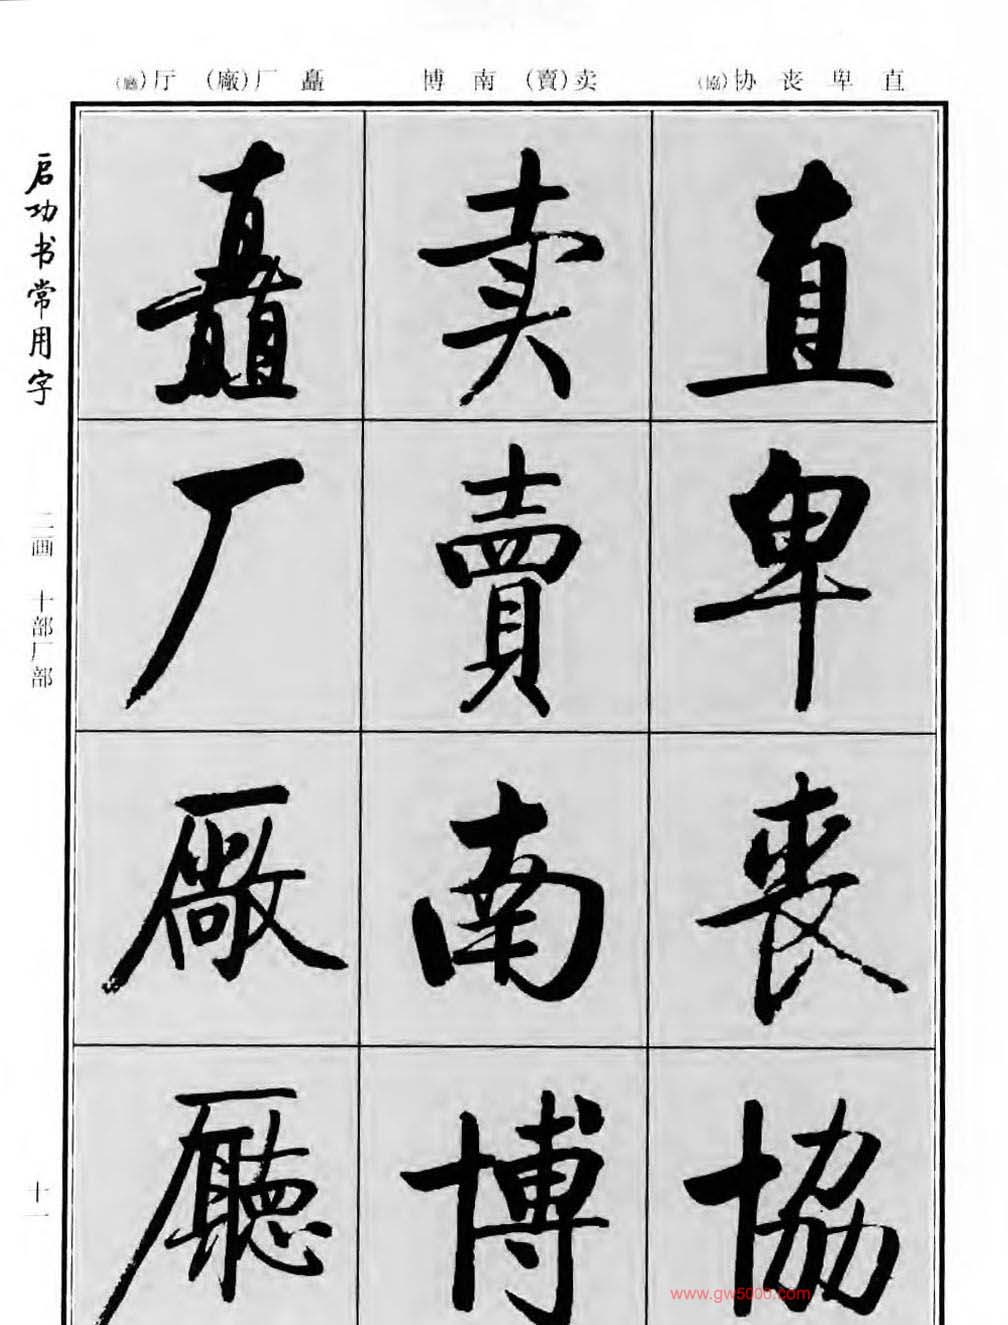 直 卑 丧 协(協)
卖(賣) 南 博
矗 厂(廠) 厅(廳)
启功书常用字
二画 十部厂部
十一
直
卑
丧
協
卖
賣
南
博
矗
厂
廠
廳
www.gw5000.com